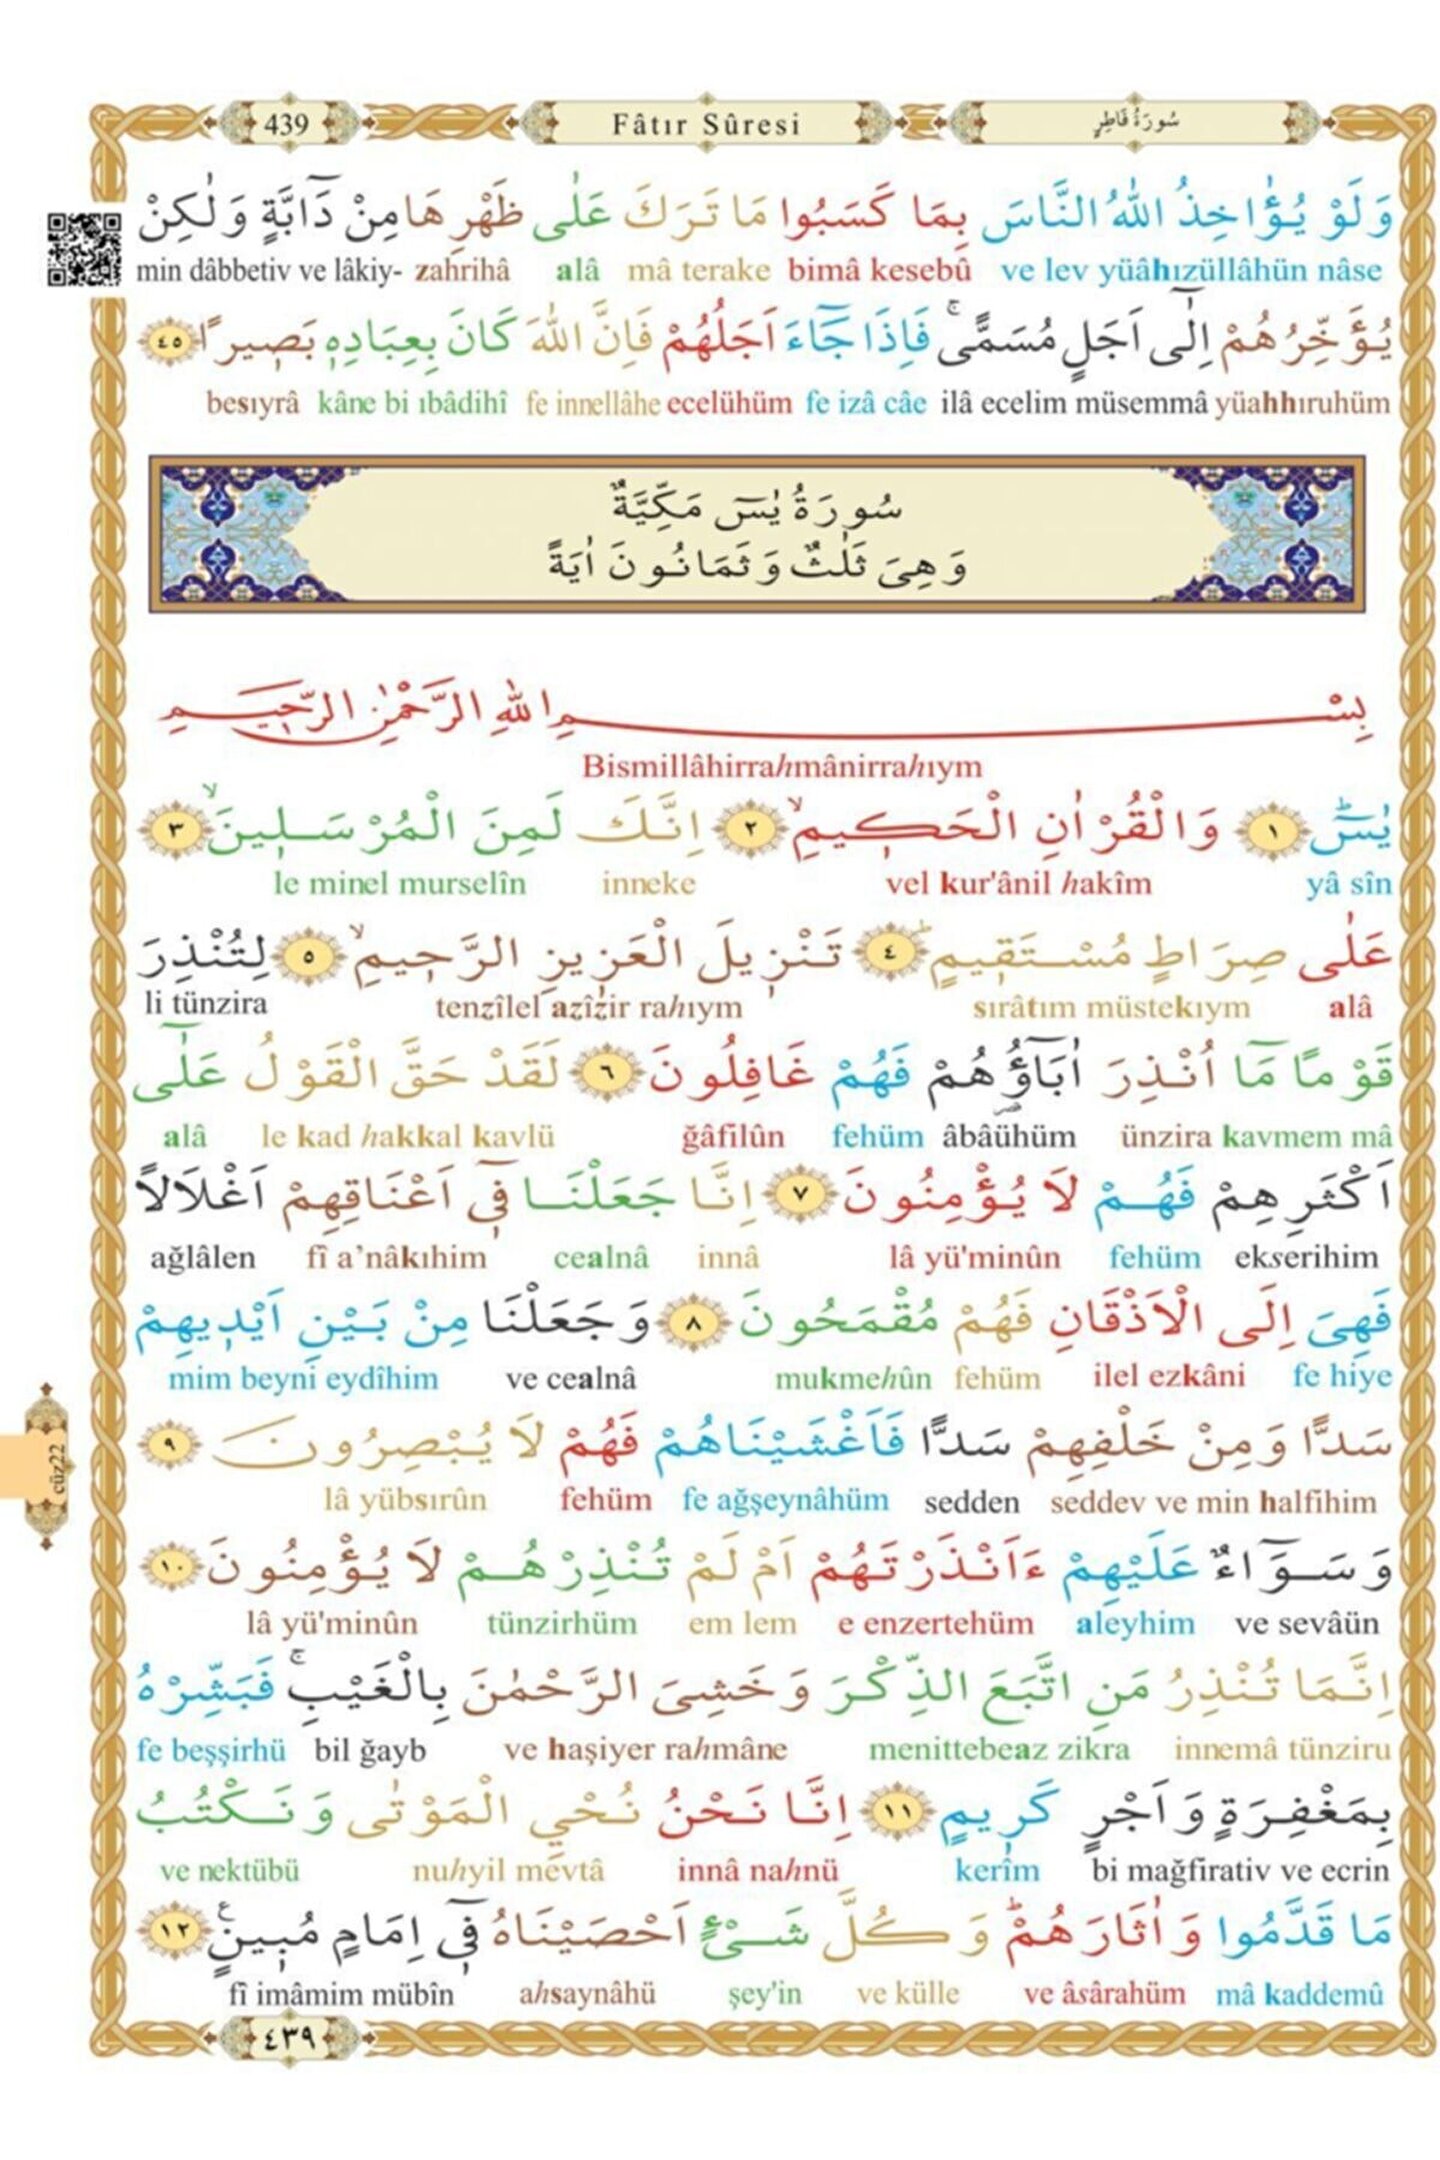 439 Fâtır Sûresi سُورَةُ فَاطِرٍ
وَلَوْ يُؤَٰاخِذُ اللّٰهُ النَّاسَ بِمَا كَسَبُوا مَا تَرَكَ عَلٰى ظَهْرِهَا مِنْ دَٓابَّةٍ وَلٰكِنْ
min dâbbetiv ve lâkiy- zahrihâ alâ mâ terake bimâ kesebû ve lev yüâhızüllâhün nâse
يُؤَخِّرُهُمْ اِلٰٓى اَجَلٍ مُسَمًّىۚ فَاِذَا جَٓاءَ اَجَلُهُمْ فَاِنَّ اللّٰهَ كَانَ بِعِبَادِهٖ بَصٖيرًا ٤٥
besıyrâ kâne bi ıbâdihî fe innellâhe ecelühüm fe izâ câe ilâ ecelim müsemmâ yüahhıruhüm
سُورَةُ يٰسٓ مَكِّيَّةٌ
وَهِىَ ثَلٰثٌ وَثَمَانُونَ اٰيَةً
بِسْمِ اللّٰهِ الرَّحْمٰنِ الرَّحٖيمِ
Bismillâhirrahmânirrahıym
يٰسٓۜ ١ وَالْقُرْاٰنِ الْحَكٖيمِۙ ٢ اِنَّكَ لَمِنَ الْمُرْسَلٖينَۙ ٣
le minel murselîn inneke vel kur'ânil hakîm yâ sîn
عَلٰى صِرَاطٍ مُسْتَقٖيمٍۜ ٤ تَنْزٖيلَ الْعَزٖيزِ الرَّحٖيمِۙ ٥ لِتُنْذِرَ
li tünzira tenzîlel azîzir rahıym sırâtım müstekıym alâ
قَوْمًا مَٓا اُنْذِرَ اٰبَٓاؤُ۬هُمْ فَهُمْ غَافِلُونَ ٦ لَقَدْ حَقَّ الْقَوْلُ عَلٰٓى
alâ le kad hakkal kavlü ğâfilûn fehüm âbâühüm ünzira kavmem mâ
اَكْثَرِهِمْ فَهُمْ لَا يُؤْمِنُونَ ٧ اِنَّا جَعَلْنَا فٖٓى اَعْنَاقِهِمْ اَغْلَالًا
ağlâlen fî a’nâkıhim cealnâ innâ lâ yü'minûn fehüm ekserihim
فَهِىَ اِلَى الْاَذْقَانِ فَهُمْ مُقْمَحُونَ ٨ وَجَعَلْنَا مِنْ بَيْنِ اَيْدٖيهِمْ
mim beyni eydîhim ve cealnâ mukmehûn fehüm ilel ezkâni fe hiye
سَدًّا وَمِنْ خَلْفِهِمْ سَدًّا فَاَغْشَيْنَاهُمْ فَهُمْ لَا يُبْصِرُونَ ٩
lâ yübsırûn fehüm fe ağşeynâhüm sedden seddev ve min halfihim
وَسَوَٓاءٌ عَلَيْهِمْ ءَاَنْذَرْتَهُمْ اَمْ لَمْ تُنْذِرْهُمْ لَا يُؤْمِنُونَ ١٠
lâ yü'minûn tünzirhüm em lem e enzertehüm aleyhim ve sevâün
اِنَّمَا تُنْذِرُ مَنِ اتَّبَعَ الذِّكْرَ وَخَشِىَ الرَّحْمٰنَ بِالْغَيْبِۚ فَبَشِّرْهُ
fe beşşirhü bil ğayb ve haşiyer rahmâne menittebeaz zikra innemâ tünziru
بِمَغْفِرَةٍ وَاَجْرٍ كَرٖيمٍ ١١ اِنَّا نَحْنُ نُحْيِي الْمَوْتٰى وَنَكْتُبُ
ve nektübü nuhyil mevtâ innâ nahnü kerîm bi mağfirativ ve ecrin
مَا قَدَّمُوا وَاٰثَارَهُمْۜ وَكُلَّ شَىْءٍ اَحْصَيْنَاهُ فٖٓى اِمَامٍ مُبٖينٍࣖ ١٢
fî imâmim mübîn ahsaynâhü şey'in ve külle ve âsârahüm mâ kaddemû
cüz22
٤٣٩